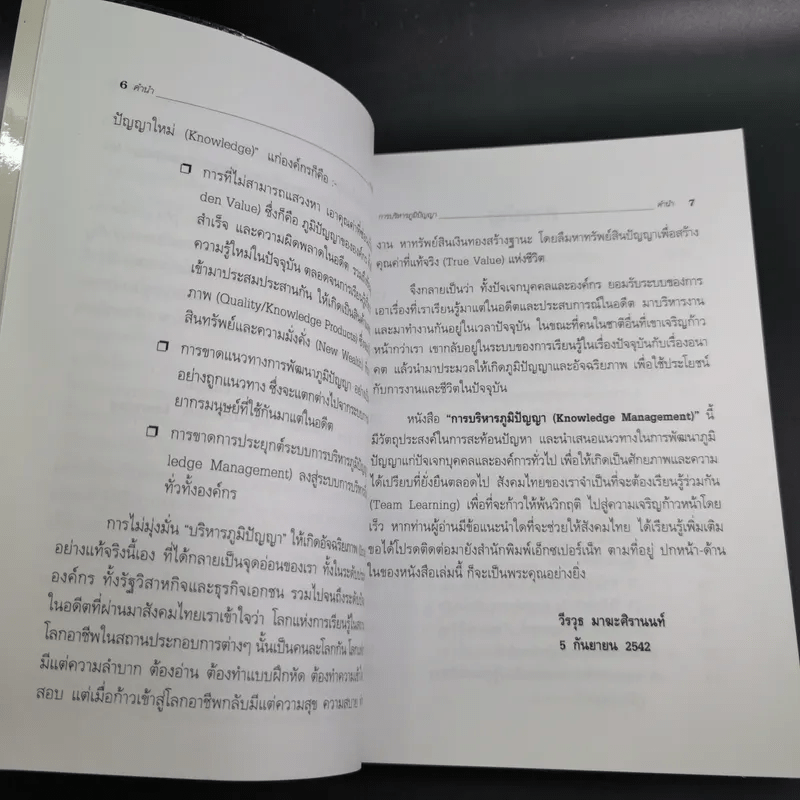 6 คำนำ
ปัญญาใหม่ (Knowledge)" แก่องค์กรก็คือ :-
❒ การที่ไม่สามารถแสวงหา เอาคุณค่าที่
den Value) ซึ่งก็คือ ภูมิปัญญาขององค์กร
สำเร็จ และความผิดพลาดในอดีต
ความรู้ใหม่ในปัจจุบัน ตลอดจนการเรียนรู้
เข้ามาประสมประสานกัน ให้เกิดเป็นสินค้า
ภาพ (Quality/Knowledge Products)
สินทรัพย์และความมั่งคั่ง (New Wealth)
❒ การขาดแนวทางการพัฒนาภูมิปัญญา
อย่างถูกแนวทาง ซึ่งจะแตกต่างไปจากระบบการ
ยากรมนุษย์ที่ใช้กันมาแต่ในอดีต
❒ การขาดการประยุกต์ระบบการบริหารภูมิปัญญา
ledge Management) ลงสู่ระบบการบริหาร
ทั่วทั้งองค์กร
การไม่มุ่งมั่น "บริหารภูมิปัญญา" ให้เกิดอัจฉริยภาพ
อย่างแท้จริงนี้เอง ที่ได้กลายเป็นจุดอ่อนของเรา ทั้งในระดับ
องค์กร ทั้งรัฐวิสาหกิจและธุรกิจเอกชน รวมไปจนถึงระดับ
ในอดีตที่ผ่านมาสังคมไทยเราเข้าใจว่า โลกแห่งการเรียนรู้ใน
โลกอาชีพในสถานประกอบการต่างๆ นั้นเป็นคนละโลกกัน
มีแต่ความลำบาก ต้องอ่าน ต้องทำแบบฝึกหัด ต้องทำความ
สอบ แต่เมื่อก้าวเข้าสู่โลกอาชีพกลับมีแต่ความสุข ความสบาย
การบริหารภูมิปัญญา คำนำ 7
งาน หาทรัพย์สินเงินทองสร้างฐานะ โดยลืมหาทรัพย์สินปัญญาเพื่อสร้าง
คุณค่าที่แท้จริง (True Value) แห่งชีวิต
จึงกลายเป็นว่า ทั้งปัจเจกบุคคลและองค์กร ยอมรับระบบของการ
เอาเรื่องที่เราเรียนรู้มาแต่ในอดีตและประสบการณ์ในอดีต มาบริหารงาน
และมาทำงานกันอยู่ในเวลาปัจจุบัน ในขณะที่คนในชาติอื่นที่เขาเจริญก้าว
หน้ากว่าเรา เขากลับอยู่ในระบบของการเรียนรู้ในเรื่องปัจจุบันกับเรื่องอนา
คต แล้วนำมาประมวลให้เกิดภูมิปัญญาและอัจฉริยภาพ เพื่อใช้ประโยชน์
กับการงานและชีวิตในปัจจุบัน
หนังสือ "การบริหารภูมิปัญญา (Knowledge Management)" นี้
มีวัตถุประสงค์ในการสะท้อนปัญหา และนำเสนอแนวทางในการพัฒนาภูมิ
ปัญญาแก่ปัจเจกบุคคลและองค์การทั่วไป เพื่อให้เกิดเป็นศักยภาพและความ
ได้เปรียบที่ยั่งยืนตลอดไป สังคมไทยของเราจำเป็นที่จะต้องเรียนรู้ร่วมกัน
(Team Learning) เพื่อที่จะก้าวให้พ้นวิกฤติ ไปสู่ความเจริญก้าวหน้าโดย
เร็ว หากท่านผู้อ่านมีข้อแนะนำใดที่จะช่วยให้สังคมไทย ได้เรียนรู้เพิ่มเติม
ขอได้โปรดติดต่อมายังสำนักพิมพ์เอ็กซเปอร์เน็ท ตามที่อยู่ ปกหน้า-ด้าน
ในของหนังสือเล่มนี้ ก็จะเป็นพระคุณอย่างยิ่ง
วีรวุธ มาฆะศิรานนท์
5 กันยายน 2542